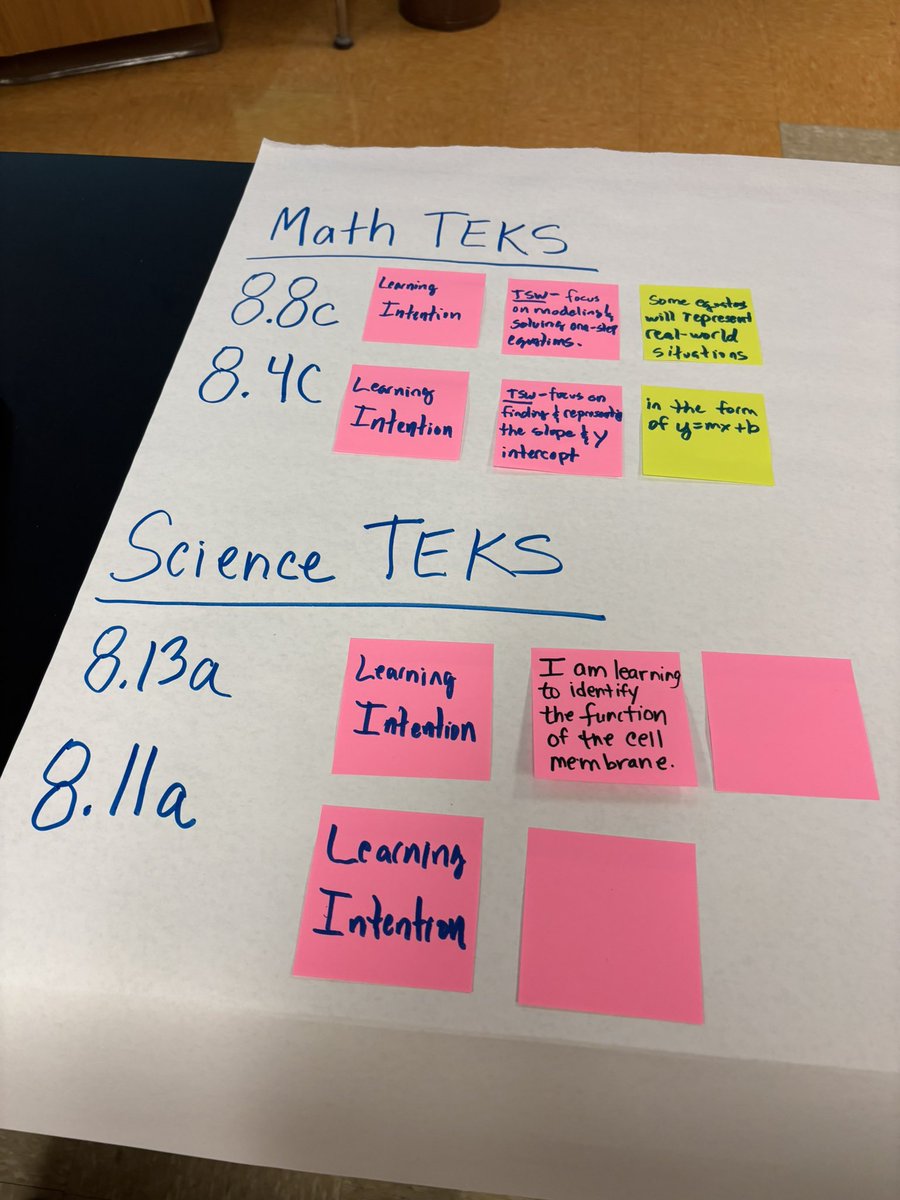 Math TEKS
8.8c
Learning
Intention
TSW - focus
on modeling &
solving one-step
equations.
Some
will represent
real-world
situations
8.4c
Learning
Intention
TSW - focus on
finding & representing
the slope & y
intercept
in the form
of y=mx+b
Science TEKS
8.13a
Learning
Intention
I am learning
to identify
the function
of the cell
membrane.
8.11a
Learning
Intention